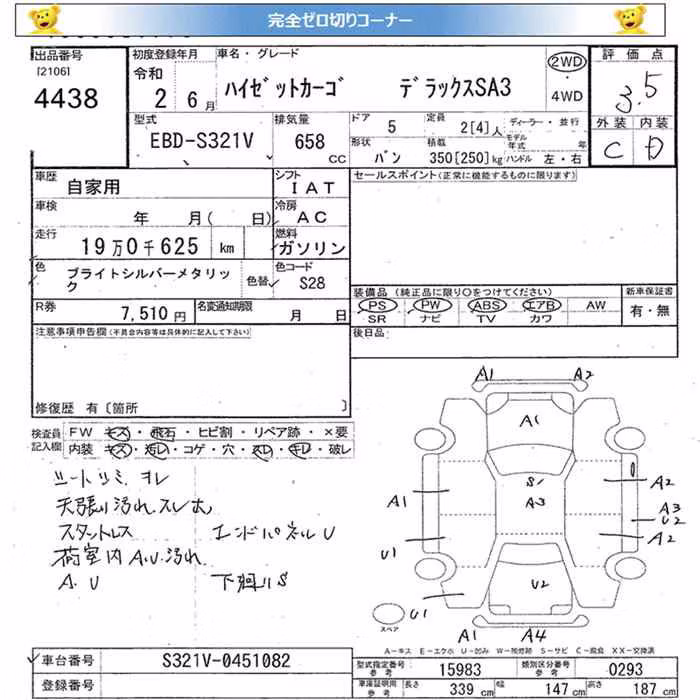 完全ゼロ切りコーナー
出品番号
[2106]
4438
初度登録年月
令和
2 6月
車名・グレード
ハイゼットカーゴ デラックスSA3
2WD
4WD
評価点
3.5
型式
EBD-S321V
排気量
658
CC
ドア 5
定員 2[4]人
ディーラー・並行
形状 バン
積載 350[250]kg
モデル年式 年
ハンドル 左・右
外装 内装
C D
車歴 自家用
シフト IAT
セールスポイント(正常に機能するものに限ります)
車検 年 月( 日)
冷房 AC
走行 19万0千625 km
燃料 ガソリン
色 ブライトシルバーメタリック
色替
色コード S28
R券 7,510円
名変通知期限 月 日
装備品 (純正品に限り○をつけてください)
PS PW ABS エアB AW
SR ナビ TV カワ
新車保証書
有・無
注意事項申告欄(不具合内容等は具体的に記入して下さい)
後日品
修復歴 有〔箇所 〕
検査員記入欄
FW キズ・飛石・ヒビ割・リペア跡・×要
内装 キズ・汚れ・コゲ・穴・スレ・キレ・破レ
シートシミ.ヨレ
天張り汚れ.スレ大
スタットレス エンドパネルU
荷室内A.U.汚れ
A.U 下廻りS
A1 A2
A1
S
A3
A1
U1
U1
A2
A3
U2
A2
U2
A1 A4
スペア
A-キズ E-エクボ U-凹み W-補修跡 S-サビ C-腐食 XX-交換済
車台番号 S321V-0451082
登録番号
型式指定番号 参考 15983
類別区分番号 参考 0293
車庫証明用 参考 長さ 339 cm 幅 147 cm 高さ 187 cm